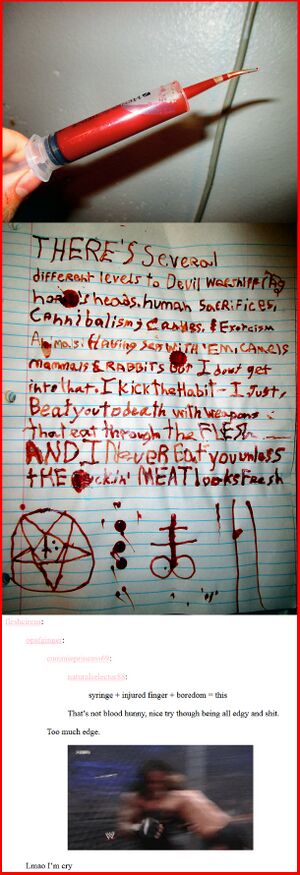 THERE'S Several
different levels to Devil Worshipping
heads, human Sacrifices,
Cannibalism; Candles, & Exorcism
Animals: Having sex WITH 'EM, CAMELS
mammals & RABBITS But I don't get
into that, I Kick the Habit - I Just,
Beat you to death with weapons
that eat through the FLESH
AND I Never Eat you unless
tHE fuckin' MEAT looks Fresh
syringe + injured finger + boredom = this
That's not blood hunny, nice try though being all edgy and shit.
Too much edge.
Lmao I'm cry